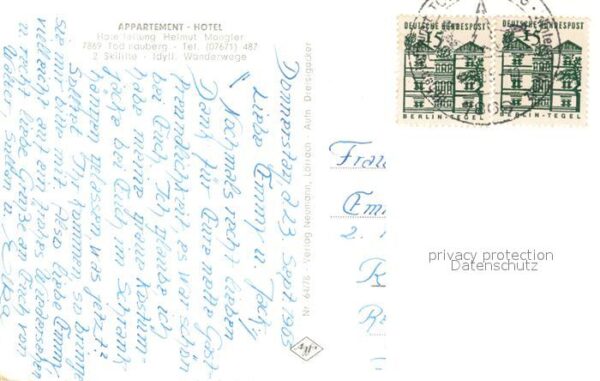 APPARTEMENT - HOTEL
Hotelleitung Helmut Mangler
7869 Todtnauberg - Tel. (07671) 487
2 Skilifte - Idyll. Wanderwege
DEUTSCHE BUNDESPOST
15
BERLIN-TEGEL
DEUTSCHE BUNDESPOST
15
BERLIN-TEGEL
Donnerstag d. 23. Sept. 1965
Liebe Emmy u. Jockj,
Nochmals recht lieben
Dank für Eure nette Gast-
freundlichkeit, es war so schön
bei Euch. Ich glaube ich
habe meine graue Kostüm-
jacke bei Euch im Schrank
hängen gelassen was jetzt?
Ihr kommen so bringe
sie mir bitte mit. Also liebe Emmy,
vielleicht auf ein frohes Wiedersehen
u. recht liebe Grüße an Euch von
u.
Nr. 64/76 - Verlag Neumann, Lörrach - Aufn. Dreisigacker
Frau
2.
privacy protection
Datenschutz